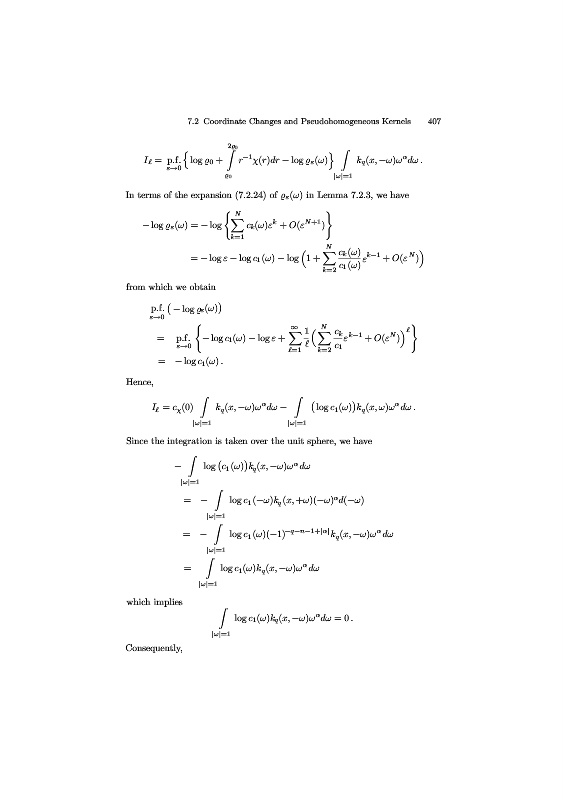 7.2 Coordinate Changes and Pseudohomogeneous Kernels 407
I_ℓ = p.f._{ε→0} { log ϱ0 + ∫_{ϱ0}^{2ϱ0} r^{-1} χ(r)dr − log ϱ_ε(ω) } ∫_{|ω|=1} k_q(x, −ω)ω^α dω .
In terms of the expansion (7.2.24) of ϱ_ε(ω) in Lemma 7.2.3, we have
− log ϱ_ε(ω) = − log { ∑_{k=1}^{N} c_k(ω)ε^k + O(ε^{N+1}) }
= − log ε − log c_1(ω) − log ( 1 + ∑_{k=2}^{N} \frac{c_k(ω)}{c_1(ω)} ε^{k−1} + O(ε^N) )
from which we obtain
p.f._{ε→0} ( − log ϱ_ε(ω) )
= p.f._{ε→0} { − log c_1(ω) − log ε + ∑_{ℓ=1}^{∞} \frac{1}{ℓ} ( ∑_{k=2}^{N} \frac{c_k}{c_1} ε^{k−1} + O(ε^N) )^ℓ }
= − log c_1(ω) .
Hence,
I_ℓ = c_χ(0) ∫_{|ω|=1} k_q(x, −ω)ω^α dω − ∫_{|ω|=1} ( log c_1(ω) ) k_q(x, ω)ω^α dω .
Since the integration is taken over the unit sphere, we have
− ∫_{|ω|=1} log ( c_1(ω) ) k_q(x, −ω)ω^α dω
= − ∫_{|ω|=1} log c_1(−ω)k_q(x, +ω)(−ω)^α d(−ω)
= − ∫_{|ω|=1} log c_1(ω)(−1)^{−q−n−1+|α|} k_q(x, −ω)ω^α dω
= ∫_{|ω|=1} log c_1(ω)k_q(x, −ω)ω^α dω
which implies
∫_{|ω|=1} log c_1(ω)k_q(x, −ω)ω^α dω = 0 .
Consequently,